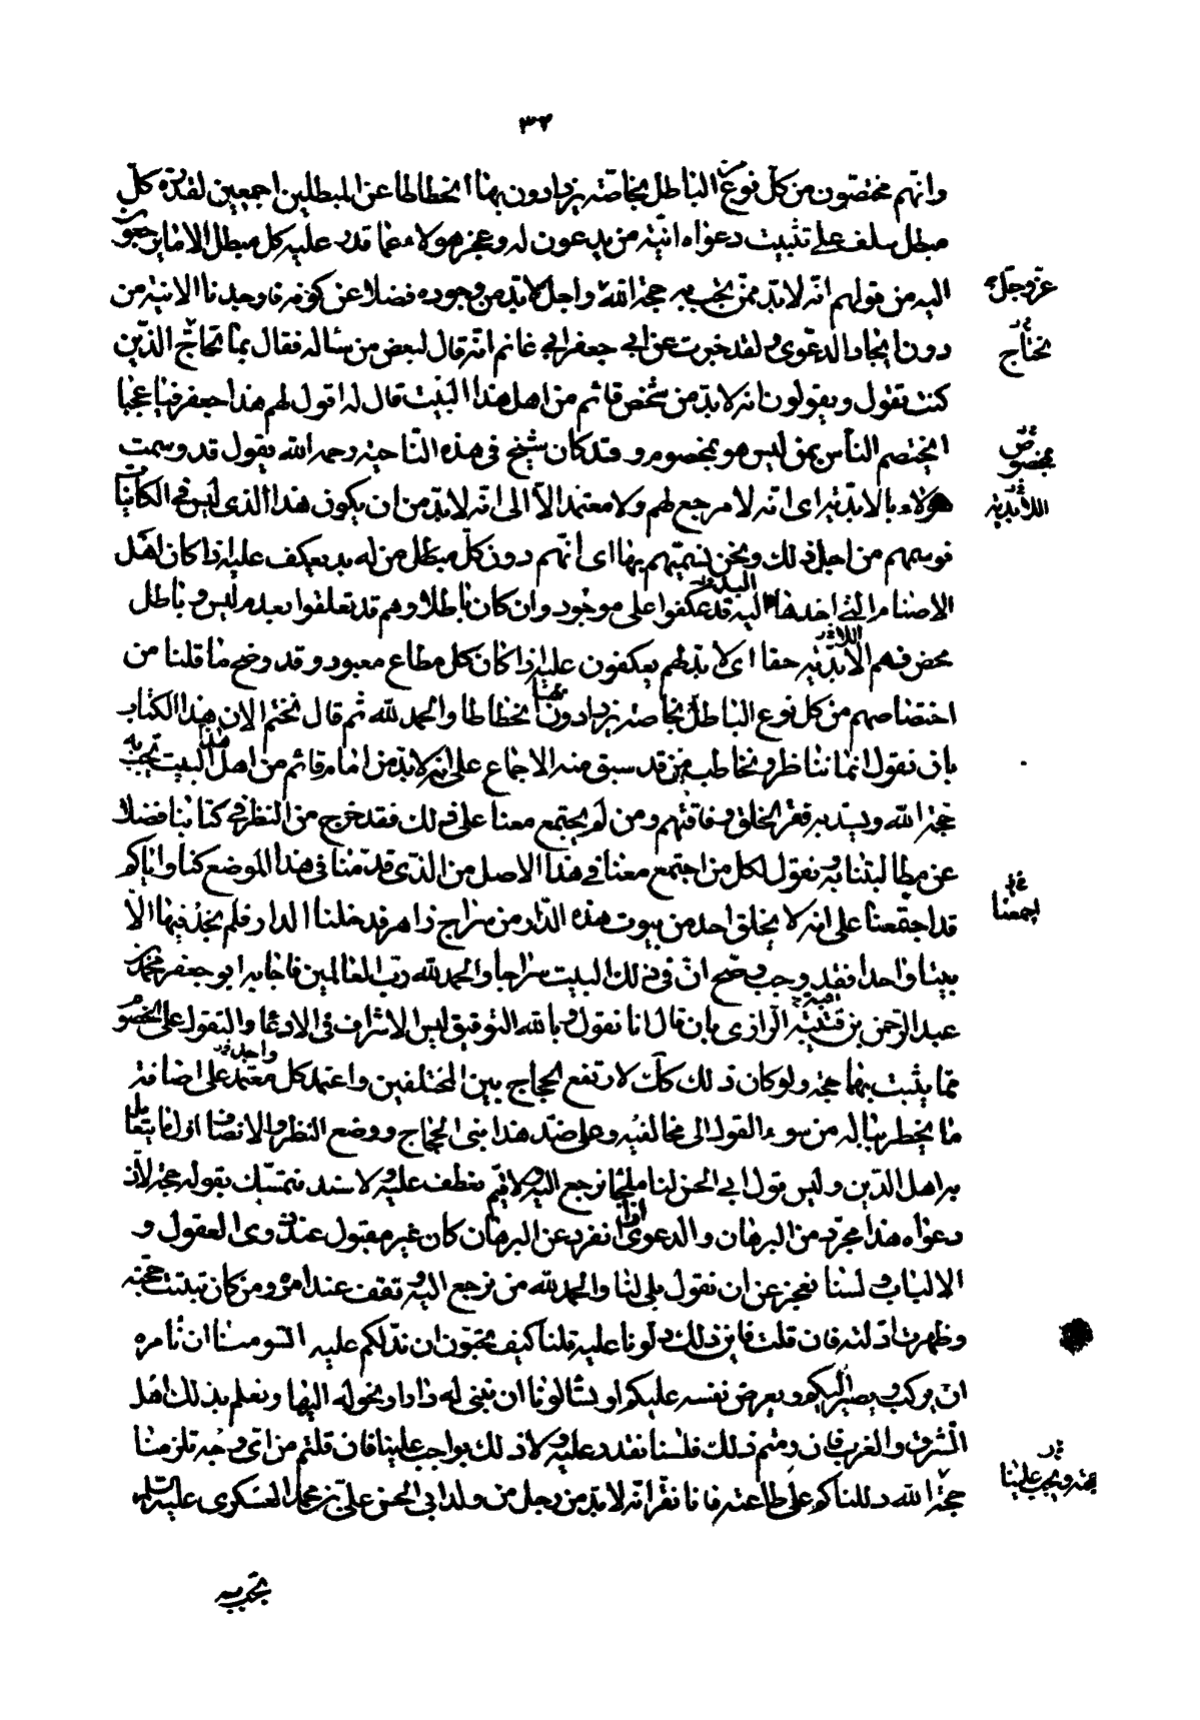 ٣٢
وانهم مختصون من كل نوع من الباطل بخاصة يزدادون بها انحطاطا عن المبطلين اجمعين لقدرة كل
مبطل سلف على تثبيت دعواه انية من يدعون له وعجز هؤلاء عما قدر عليه كل مبطل الا ما يرجعون
اليه من قولهم انه لا بد ممن تجب به حجة الله واجل لا بد من وجوده فضلا عن كونه فاوجدنا الانية من
عز وجل
دون ايجاد الدعوى ولقد خبرت عن ابي جعفر ابي غانم انه قال لبعض من سأله فقال بما تحاج الذين
تحتاج
كنت تقول ويقولون انه لا بد من شخص قائم من اهل هذا البيت قال له اقول لهم هذا جعفر فيا عجبا
ايختصم الناس بمن ليس هو بمخصوم وقد كان شيخ في هذه الناحية رحمه الله يقول قد وسمت
بمخصوص
هؤلاء باللابدية اى انه لا مرجع لهم ولا معتمد الا الى انه لا بد من ان يكون هذا الذى ليس في الكائنات
اللابدية
فوسمهم من اجل ذلك ونحن نسميهم بها اى انهم دون كل مبطل من له بد يعكف عليه اذا كان اهل
الاصنام التي احدها البد قد عكفوا على موجود وان كان باطلا وهم قد تعلقوا بعدم ليس وباطل
محض فهم اللابدية حقا اى لا بد لهم يعكفون عليه اذا كان كل مطاع معبود وقد وضح ما قلنا من
اختصاصهم من كل نوع الباطل بخاصة يزدادون بها انحطاطا والحمد لله ثم قال نختم الان هذا الكتاب
بان نقول انما نناظر ونخاطب من قد سبق منه الاجماع على انه لا بد من امام قائم من اهل هذا البيت تجب به
حجة الله ويسد به فقر الخلق وفاقتهم ومن لم يجتمع معنا على ذلك فقد خرج من النظر في كتابنا فضلا
عن مطالبتنا به نقول لكل من اجتمع معنا في هذا الاصل من الذى قدمنا في هذا الموضع كنا واياكم
قد اجتمعنا على انه لا يخلو احد من بيوت هذه الدار من سراج زاهر فدخلنا الدار فلم نجد فيها الا
بيتا واحدا فقد وجب وصح ان في ذلك البيت سراجا والحمد لله رب العالمين فاجابه ابو جعفر محمد بن
عبد الرحمن بن قبة الرازى بان قال انا نقول وبالله التوفيق ليس الاسراف في الادعاء والتقول على الخصوم
مما يثبت بها حجة ولو كان ذلك كذلك لارتفع الحجاج بين المختلفين واعتمد كل واحد على اضافة
ما يخطر بباله من سوء القول الى مخالفيه وعلى ضد هذا بنى الحجاج ووضع النظر والانصاف اولى ما يتعامل
به اهل الدين وليس قول ابي الحسن لنا ملجأ نرجع اليه ولا قيم نعطف عليه ولا سند نتمسك بقوله حجة لان
دعواه هذا مجرد من البرهان والدعوى اذا انفرد عن البرهان كان غير مقبول عند ذوى العقول و
الالباب ولسنا نعجز عن ان نقول بلى لنا والحمد لله من نرجع اليه ونقف عند امره ومن كان تبتت حجته
وظهرت ادلته فان قلت فاين ذلك دلونا عليه قلنا كيف تحبون ان ندلكم عليه اتسومننا ان نأمره
ان يركب ويصير اليكم ويعرض نفسه عليكم او يسألونا ان نبنى له دارا ونحوله اليها ونعلم بذلك اهل
الشرق والغرب فان رمتم ذلك فلسنا نقدر عليه ولا ذلك بواجب علينا فان قلتم من اى وجه تلزمنا
حجة الله دللناكم على طاعته فانا نقر انه لا بد من رجل من ولد ابي الحسن على بن محمد العسكرى عليه السلم
تجب به